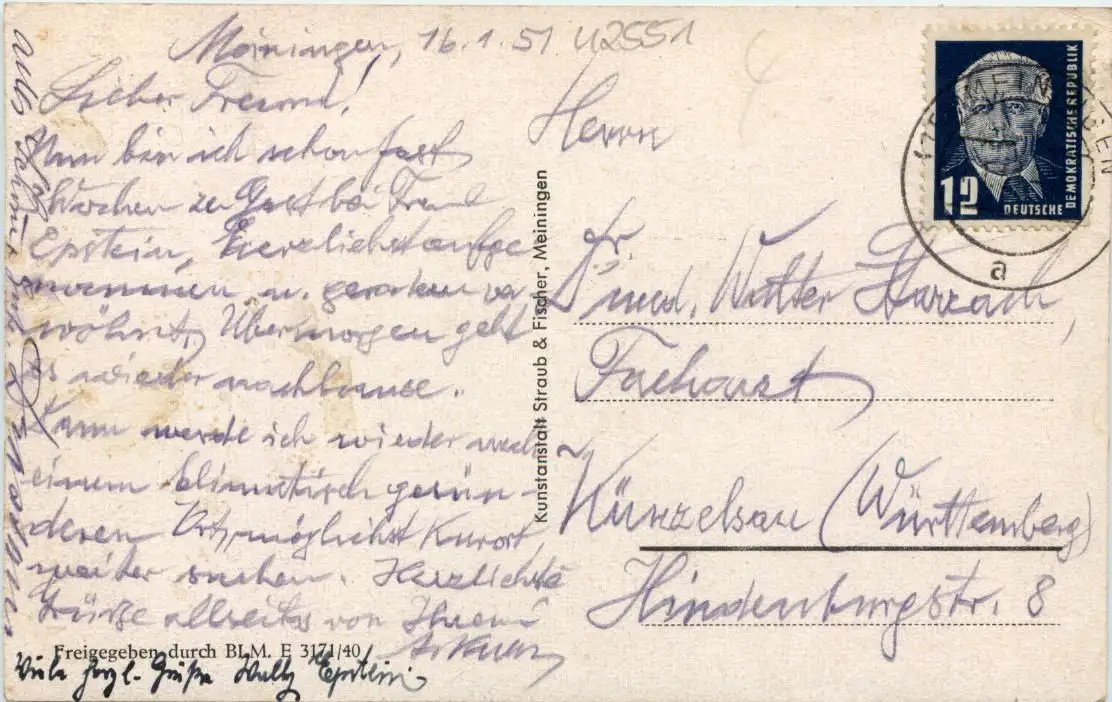 Meiningen, 16.1.51 U2551
Lieber Freund!
Nun bin ich schon fast
Wochen zu Gast bei Freund
Epstein, herzlichst aufge
nommen u. geradezu ver
wöhnt. Übermorgen geht
es wieder nachhause.
Dann werde ich wieder nach
einem klimatisch gesün-
deren Ort, möglichst Kurort,
weiter suchen. Herzlichste
Grüße allseits von Ihrem
auch
Freigegeben durch BLM. E 3171/40
Viele herzl. Grüße Epstein
Kunstanstalt Straub & Fischer, Meiningen
Herrn
Dr. med. Walter
Facharzt
Künzelsau (Württemberg)
Hindenburgstr. 8
MEININGEN
a
12
DEUTSCHE
DEMOKRATISCHE REPUBLIK